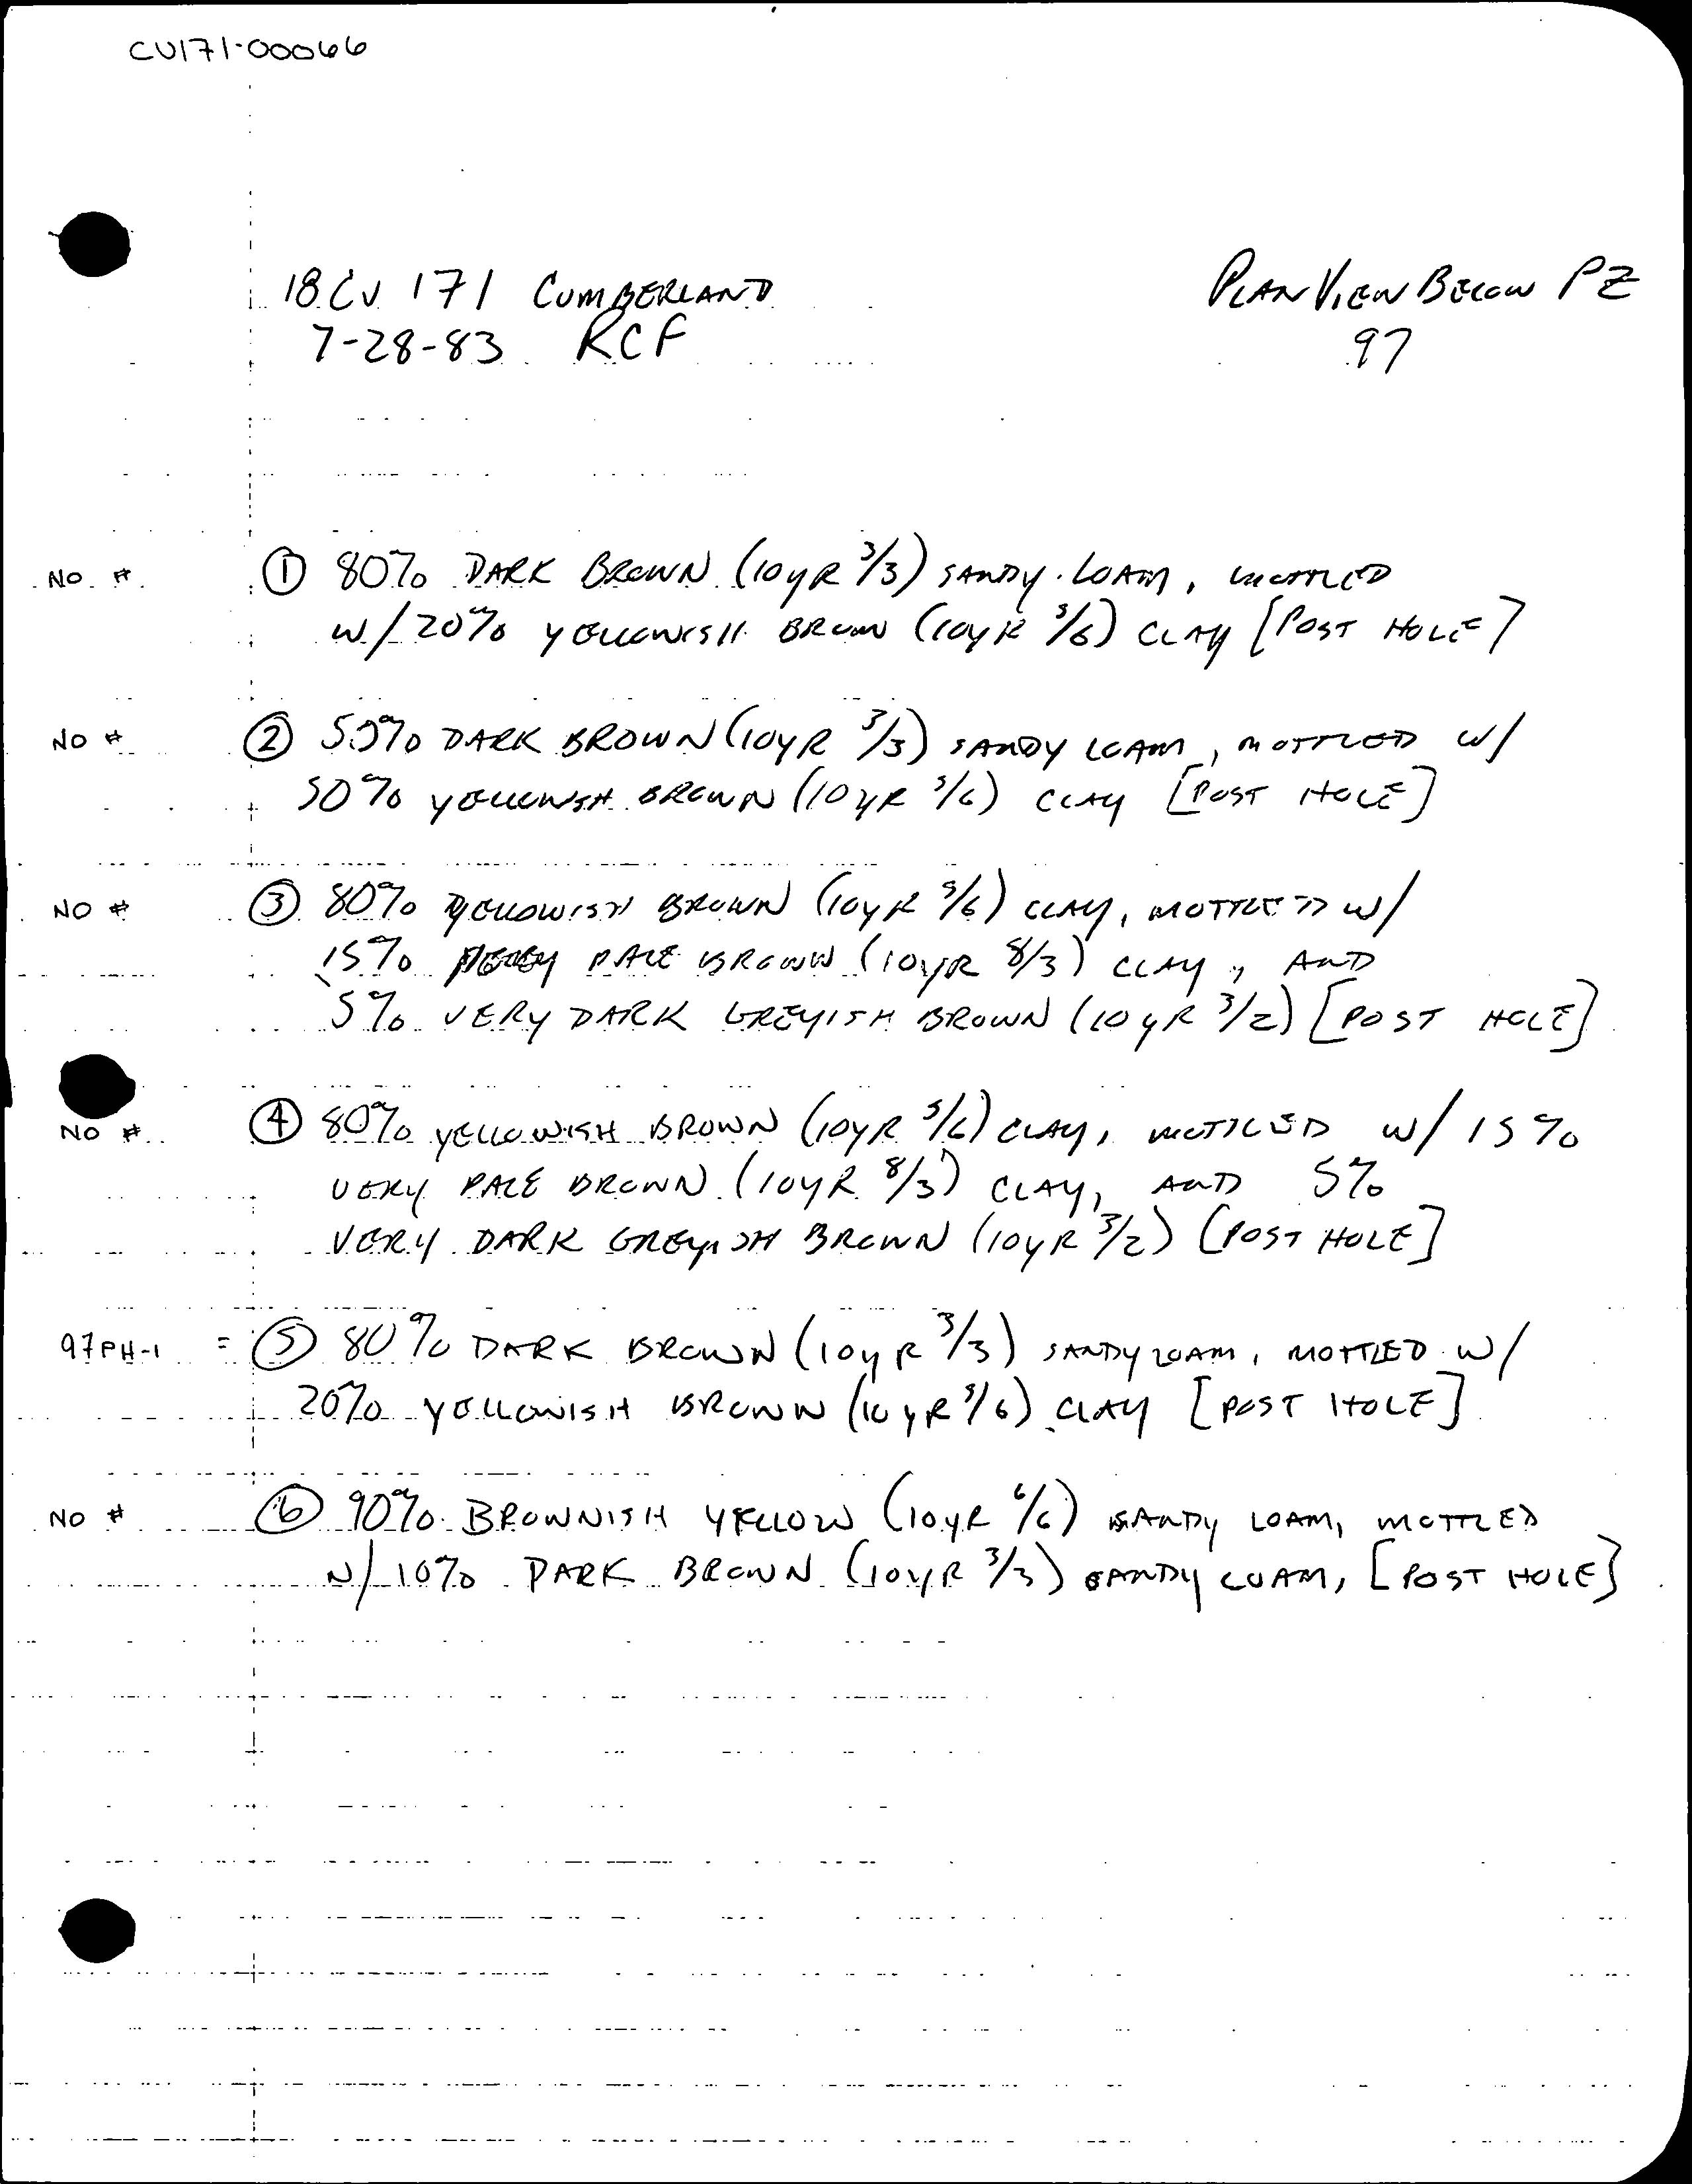 CV171-00066
18 CV 171 CUMBERLAND
PLAN VIEW BELOW PZ
7-28-83 RCF
97
NO # ① 80% DARK BROWN (10YR 3/3) SANDY LOAM, MOTTLED
W/20% YELLOWISH BROWN (10YR 5/6) CLAY [POST HOLE]
NO # ② 50% DARK BROWN (10YR 3/3) SANDY LOAM, MOTTLED W/
50% YELLOWISH BROWN (10YR 5/6) CLAY [POST HOLE]
NO # ③ 80% YELLOWISH BROWN (10YR 5/6) CLAY, MOTTLED W/
15% VERY PALE BROWN (10YR 8/3) CLAY, AND
5% VERY DARK GREYISH BROWN (10YR 3/2) [POST HOLE]
NO # ④ 80% YELLOWISH BROWN (10YR 5/6) CLAY, MOTTLED W/ 15%
VERY PALE BROWN (10YR 8/3) CLAY, AND 5%
VERY DARK GREYISH BROWN (10YR 3/2) [POST HOLE]
97PH-1 = ⑤ 80% DARK BROWN (10YR 3/3) SANDY LOAM, MOTTLED W/
20% YELLOWISH BROWN (10YR 5/6) CLAY [POST HOLE]
NO # ⑥ 90% BROWNISH YELLOW (10YR 6/6) SANDY LOAM, MOTTLED
W/ 10% DARK BROWN (10YR 3/3) SANDY LOAM, [POST HOLE]